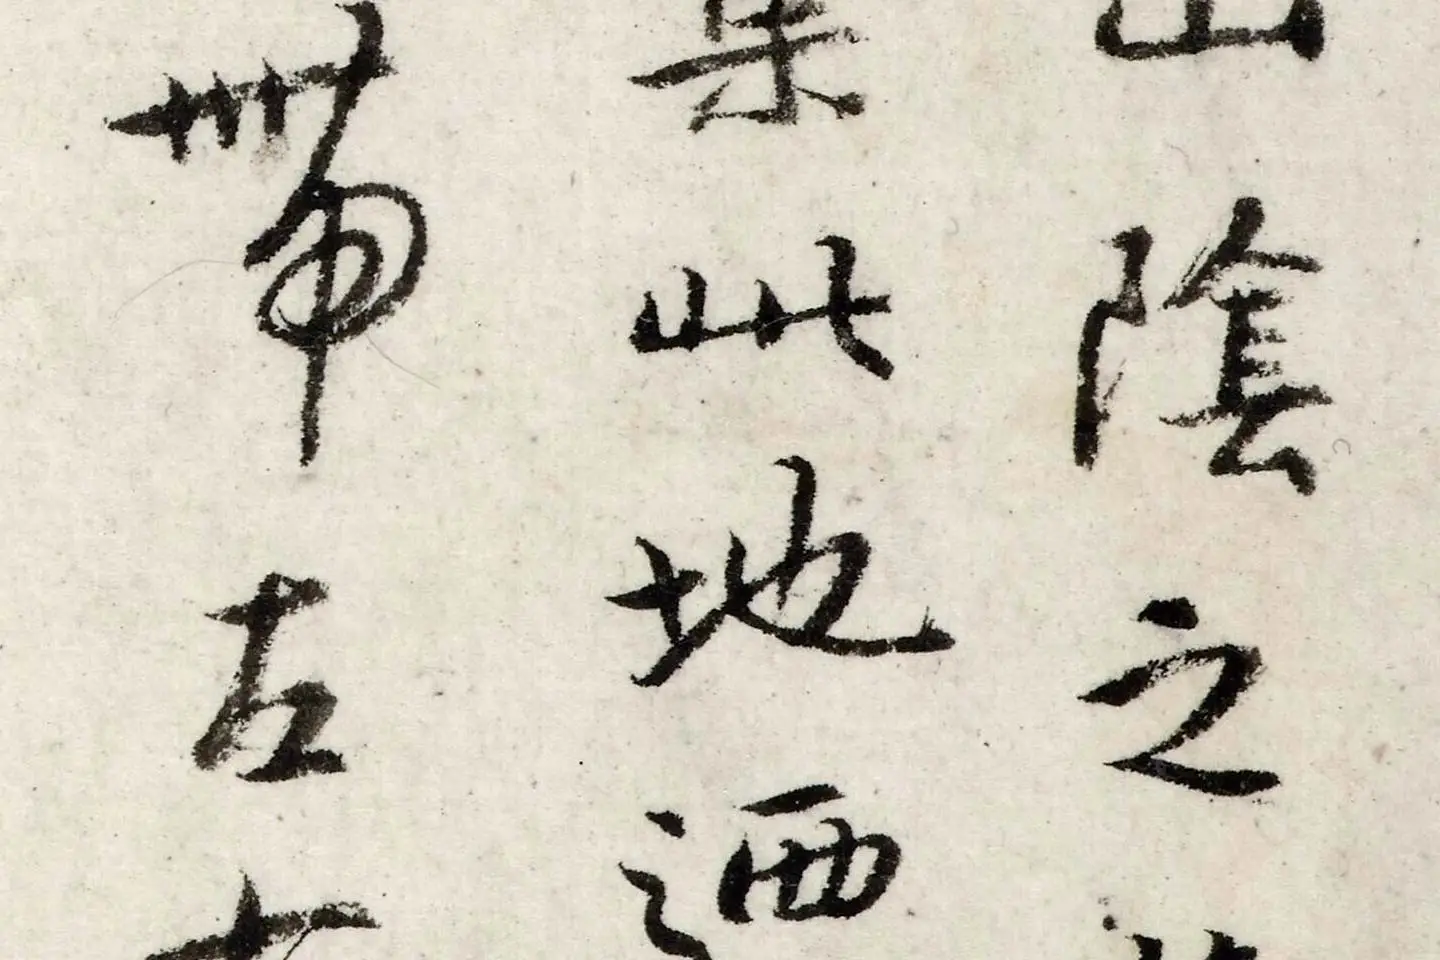 山陰之
集此地迺
帶左